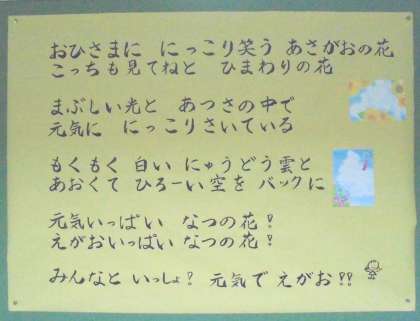 おひさまに にっこり笑う あさがおの花
こっちも見てねと ひまわりの花
まぶしい光と あつさの中で
元気に にっこりさいている
もくもく 白い にゅうどう雲と
あおくて ひろーい空を バックに
元気いっぱい なつの花!
えがおいっぱい なつの花!
みんなと いっしょ? 元気で えがお!!